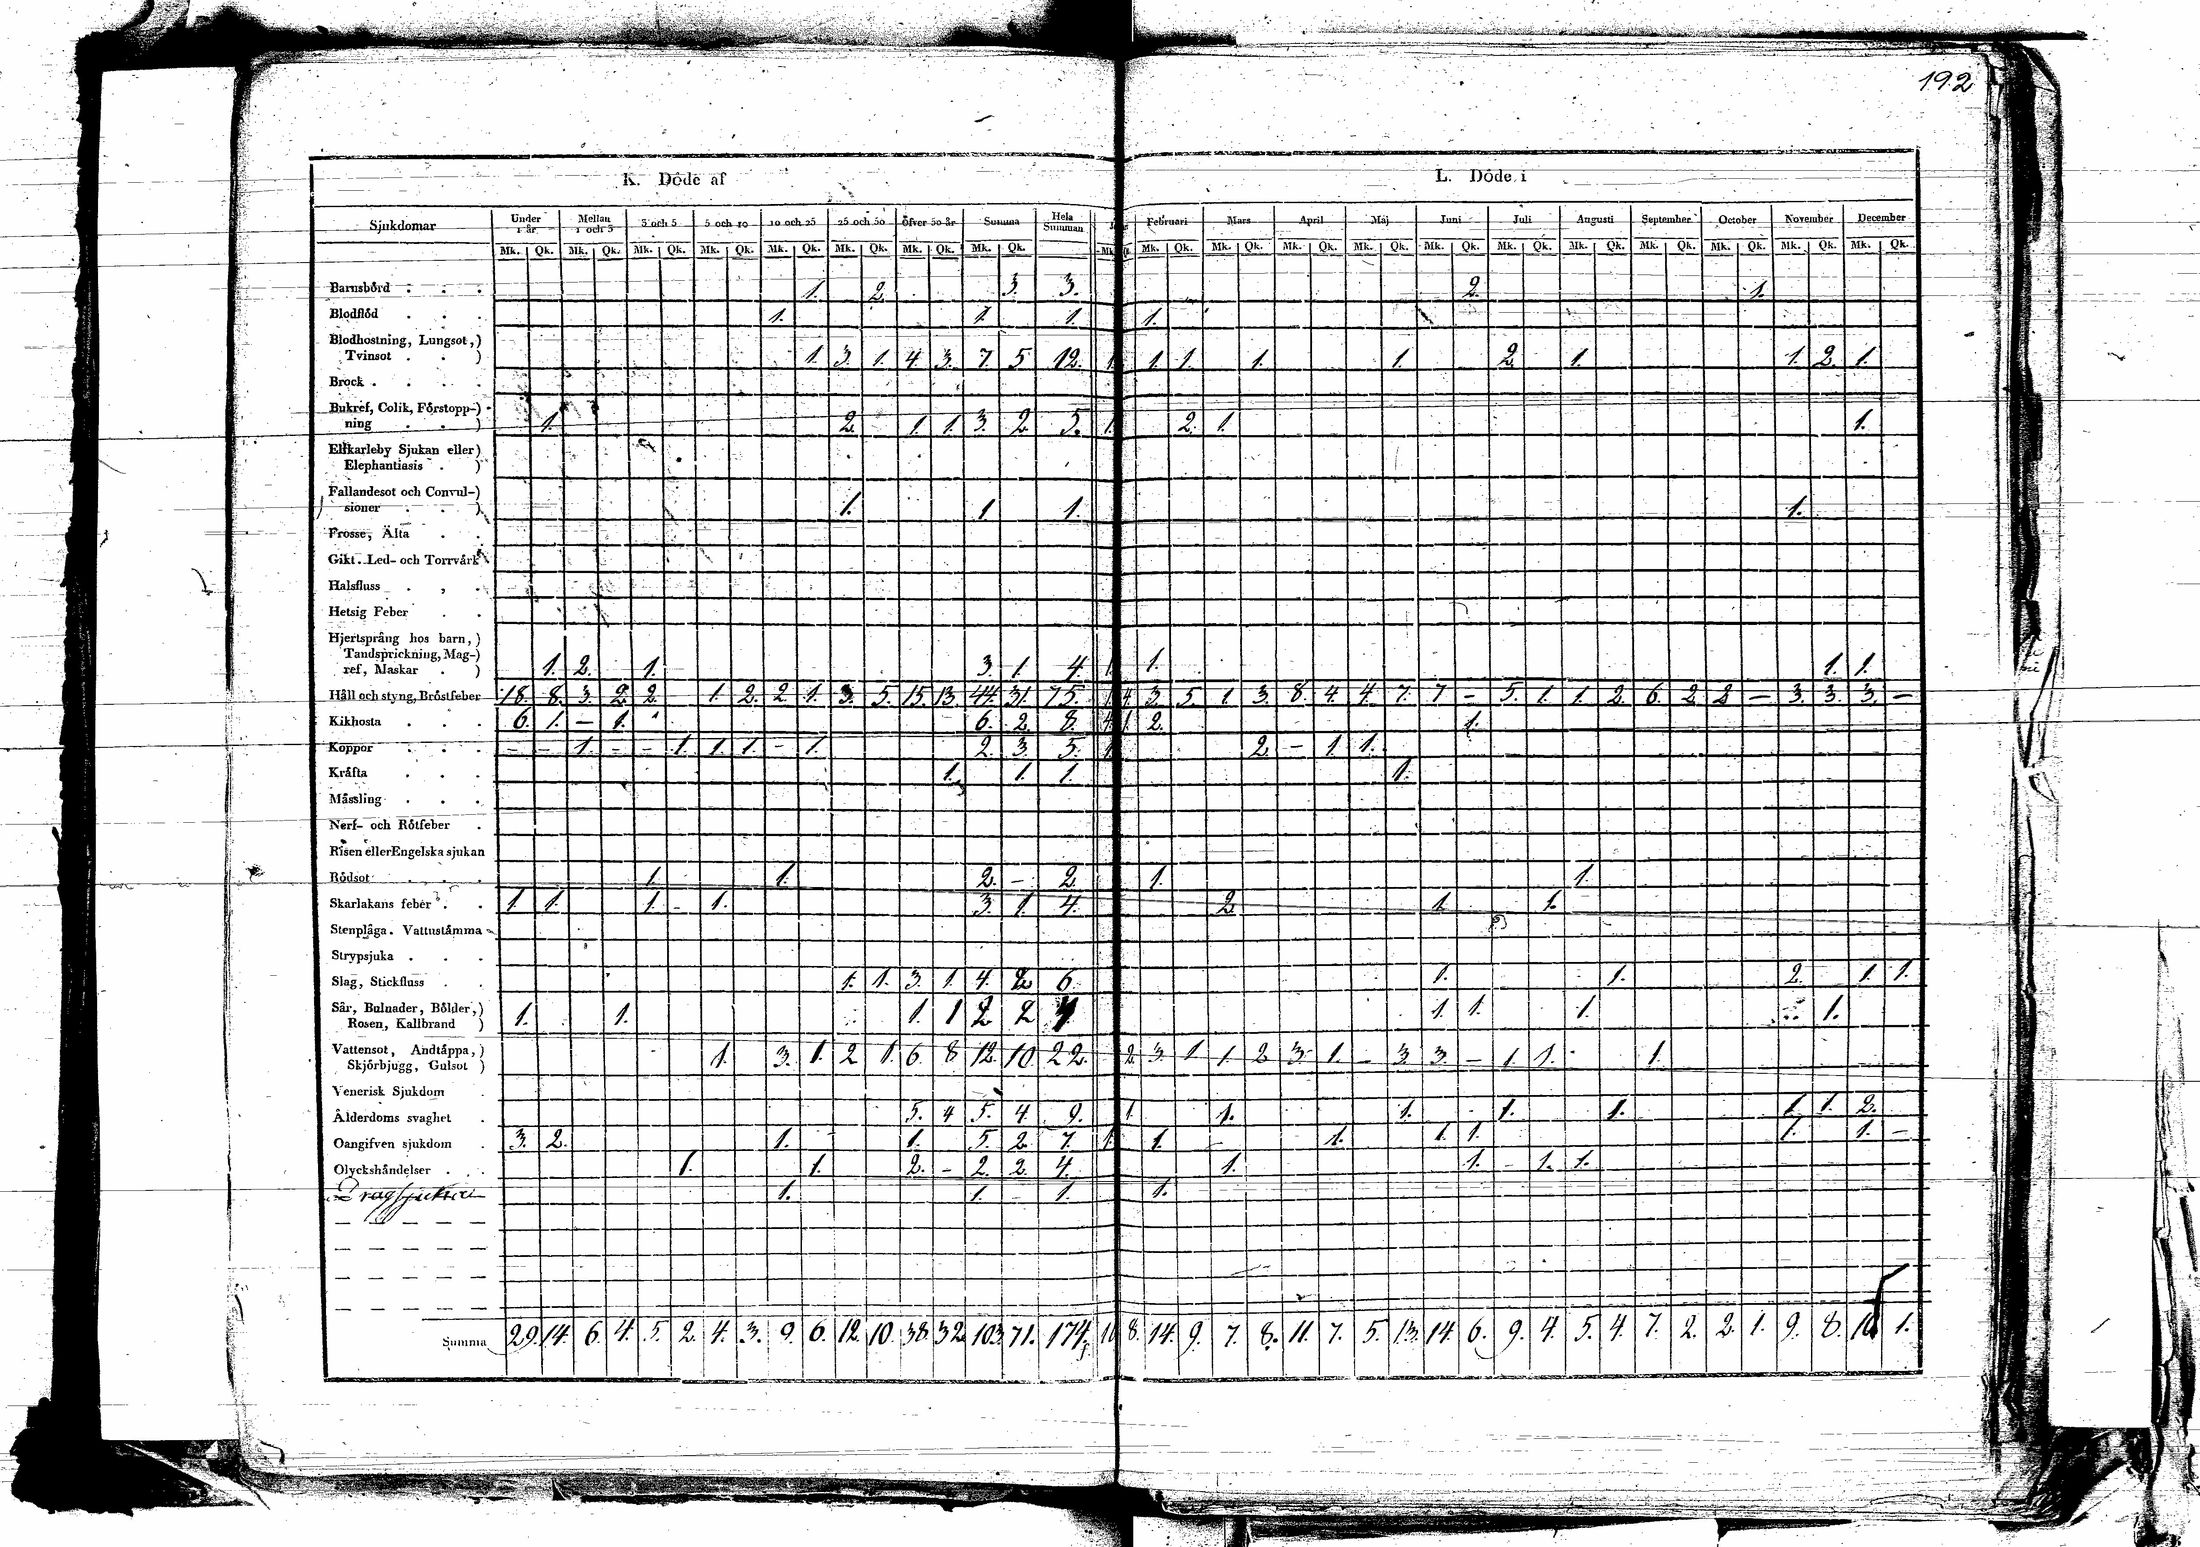 192
K. Döde af
L. Döde i
Sjukdomar Under 1 år. Mellan 1 och 3 3 och 5 5 och 10 10 och 25 25 och 50 Öfver 50 år Summa Hela Summan Februari Mars April Maj Juni Juli Augusti September October November December
Mk. Qk. Mk. Qk. Mk. Qk. Mk. Qk. Mk. Qk. Mk. Qk. Mk. Qk. Mk. Qk. Mk. Mk. Qk. Mk. Qk. Mk. Qk. Mk. Qk. Mk. Qk. Mk. Qk. Mk. Qk. Mk. Qk. Mk. Qk. Mk. Qk. Mk. Qk.
Barnsbörd . . . 1. 2. 3. 3. 2. 1.
Blodflöd . . . 1. 1. 1. 1.
Blodhostning, Lungsot,)
Tvinsot . . ) 1. 3. 1. 4. 3. 7. 5 12. 1. 1. 1. 1. 1. 2. 1. 1. 2. 1.
Brock . . . .
Bukref, Colik, Förstopp-)
ning . . ) 1. 2. 1. 1. 3. 2. 5. 1. 2. 1. 1.
Elfkarleby Sjukan eller)
Elephantiasis . )
Fallandesot och Convul-)
sioner . . ) 1. 1 1. 1.
Frosse, Älta . .
Gikt. Led- och Torrvärk
Halsfluss . , .
Hetsig Feber . .
Hjertsprång hos barn,)
Tandsprickning, Mag-)
ref, Maskar . ) 1. 2. 1. 3. 1. 4. 1. 1. 1. 1.
Håll och styng, Bröstfeber 18. 8. 3. 2. 2. - 1. 2. 2. 1. 3. 5. 15. 13. 44. 31. 75. 1. 4. 3. 5. 1 3. 8. 4. 4. 7. 7 - 5. 1. 1. 2. 6. 2. 2 - 3. 3. 3. -
Kikhosta . . . 6. 1. - 1. 6. 2. 8. 4. 1. 2. 1.
Koppor . . . - - 1. - - 1. 1. 1. - 1. 2. 3. 5. 1. 2. - 1. 1.
Kräfta . . . 1. 1. 1. 1.
Mässling . . .
Nerf- och Rötfeber .
Risen eller Engelska sjukan
Rödsot . . . 1. 1. 2. - 2. 1. 1.
Skarlakans feber . . 1. 1. 1. - 1. 3. 1. 4. 2. 1. 1.
Stenplåga. Vattustämma
Strypsjuka . . .
Slag, Stickfluss . . 1. 1. 3. 1. 4. 2. 6. 1. 1. 2. 1. 1.
Sår, Bulnader, Bölder,)
Rosen, Kallbrand ) 1. 1. 1. 1 2 2 4. 1. 1. 1. 1.
Vattensot, Andtäppa,)
Skjörbjugg, Gulsot ) 1. 3. 1. 2 1. 6. 8 12. 10. 22. 2. 3. 1 1. 2 3. 1. - 3. 3. - 1 1. 1.
Venerisk Sjukdom .
Ålderdoms svaghet . 5. 4 5. 4 9. 1. 1. 1. 1. 1. 1. 1. 2.
Oangifven sjukdom . 3. 2. 1. 1. 5. 2. 7. 1. 1. 1. 1. 1. 1. 1. -
Olyckshändelser . . 1. 1. 2. - 2. 2 4. 1. 1. - 1. 1.
Dragsjukan 1. 1. 1. 1.
Summa 29. 14. 6. 4. 5. 2. 4. 3. 9. 6. 12. 10. 38. 32. 103. 71. 174. 10 8. 14. 9. 7. 8. 11. 7. 5. 13. 14. 6. 9. 4. 5. 4. 7. 2. 2. 1. 9. 8. 10 1.